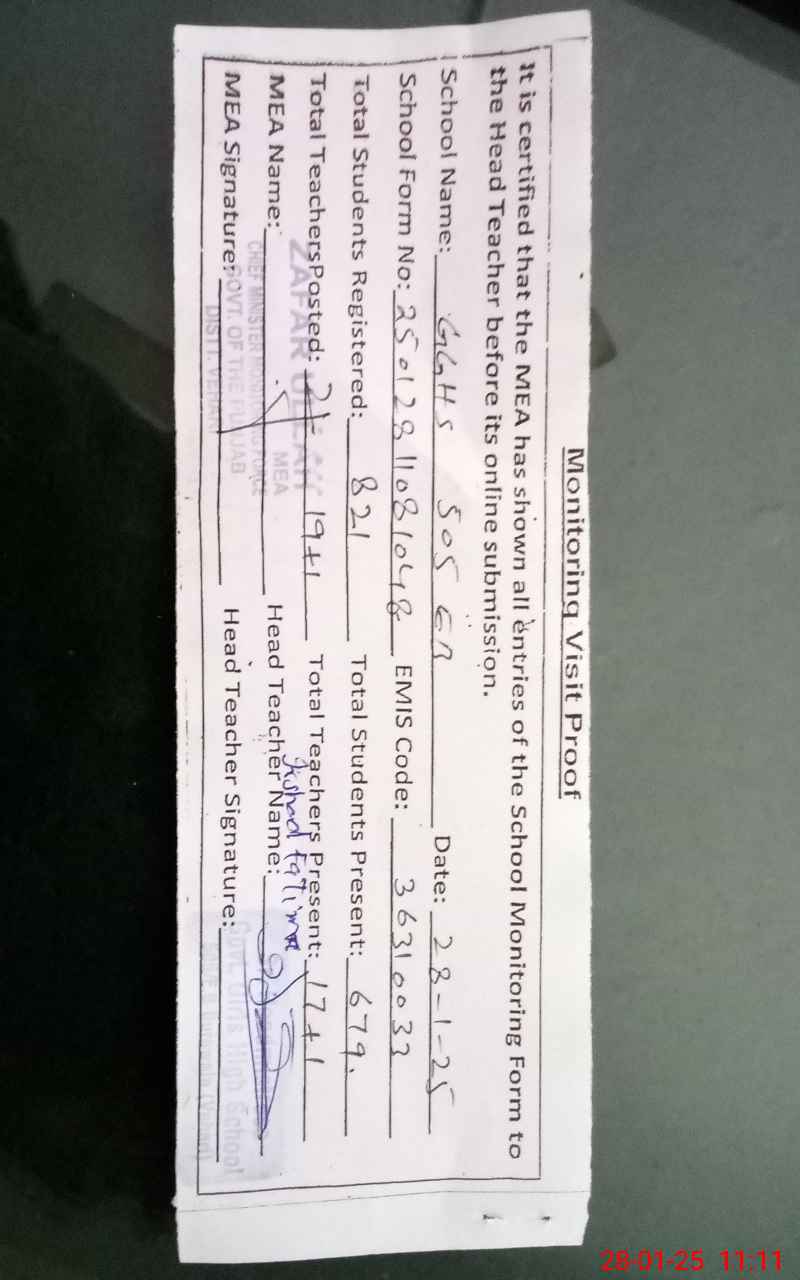 Monitoring Visit Proof
It is certified that the MEA has shown all entries of the School Monitoring Form to
the Head Teacher before its online submission.
School Name: GGHS 505 EB Date: 28-1-25
School Form No: 25012811081048 EMIS Code: 36310033
Total Students Registered: 821 Total Students Present: 679.
Total TeachersPosted: 19+1 Total Teachers Present: 17+1
MEA Name: Head Teacher Name: Fatima
MEA Signature: Head Teacher Signature:
ZAFAR ULLAH
MEA
CHIEF MINISTER MONITORING FORCE
GOVT. OF THE PUNJAB
DISTT. VEHARI
Govt. Girls High School
28-01-25 11:11